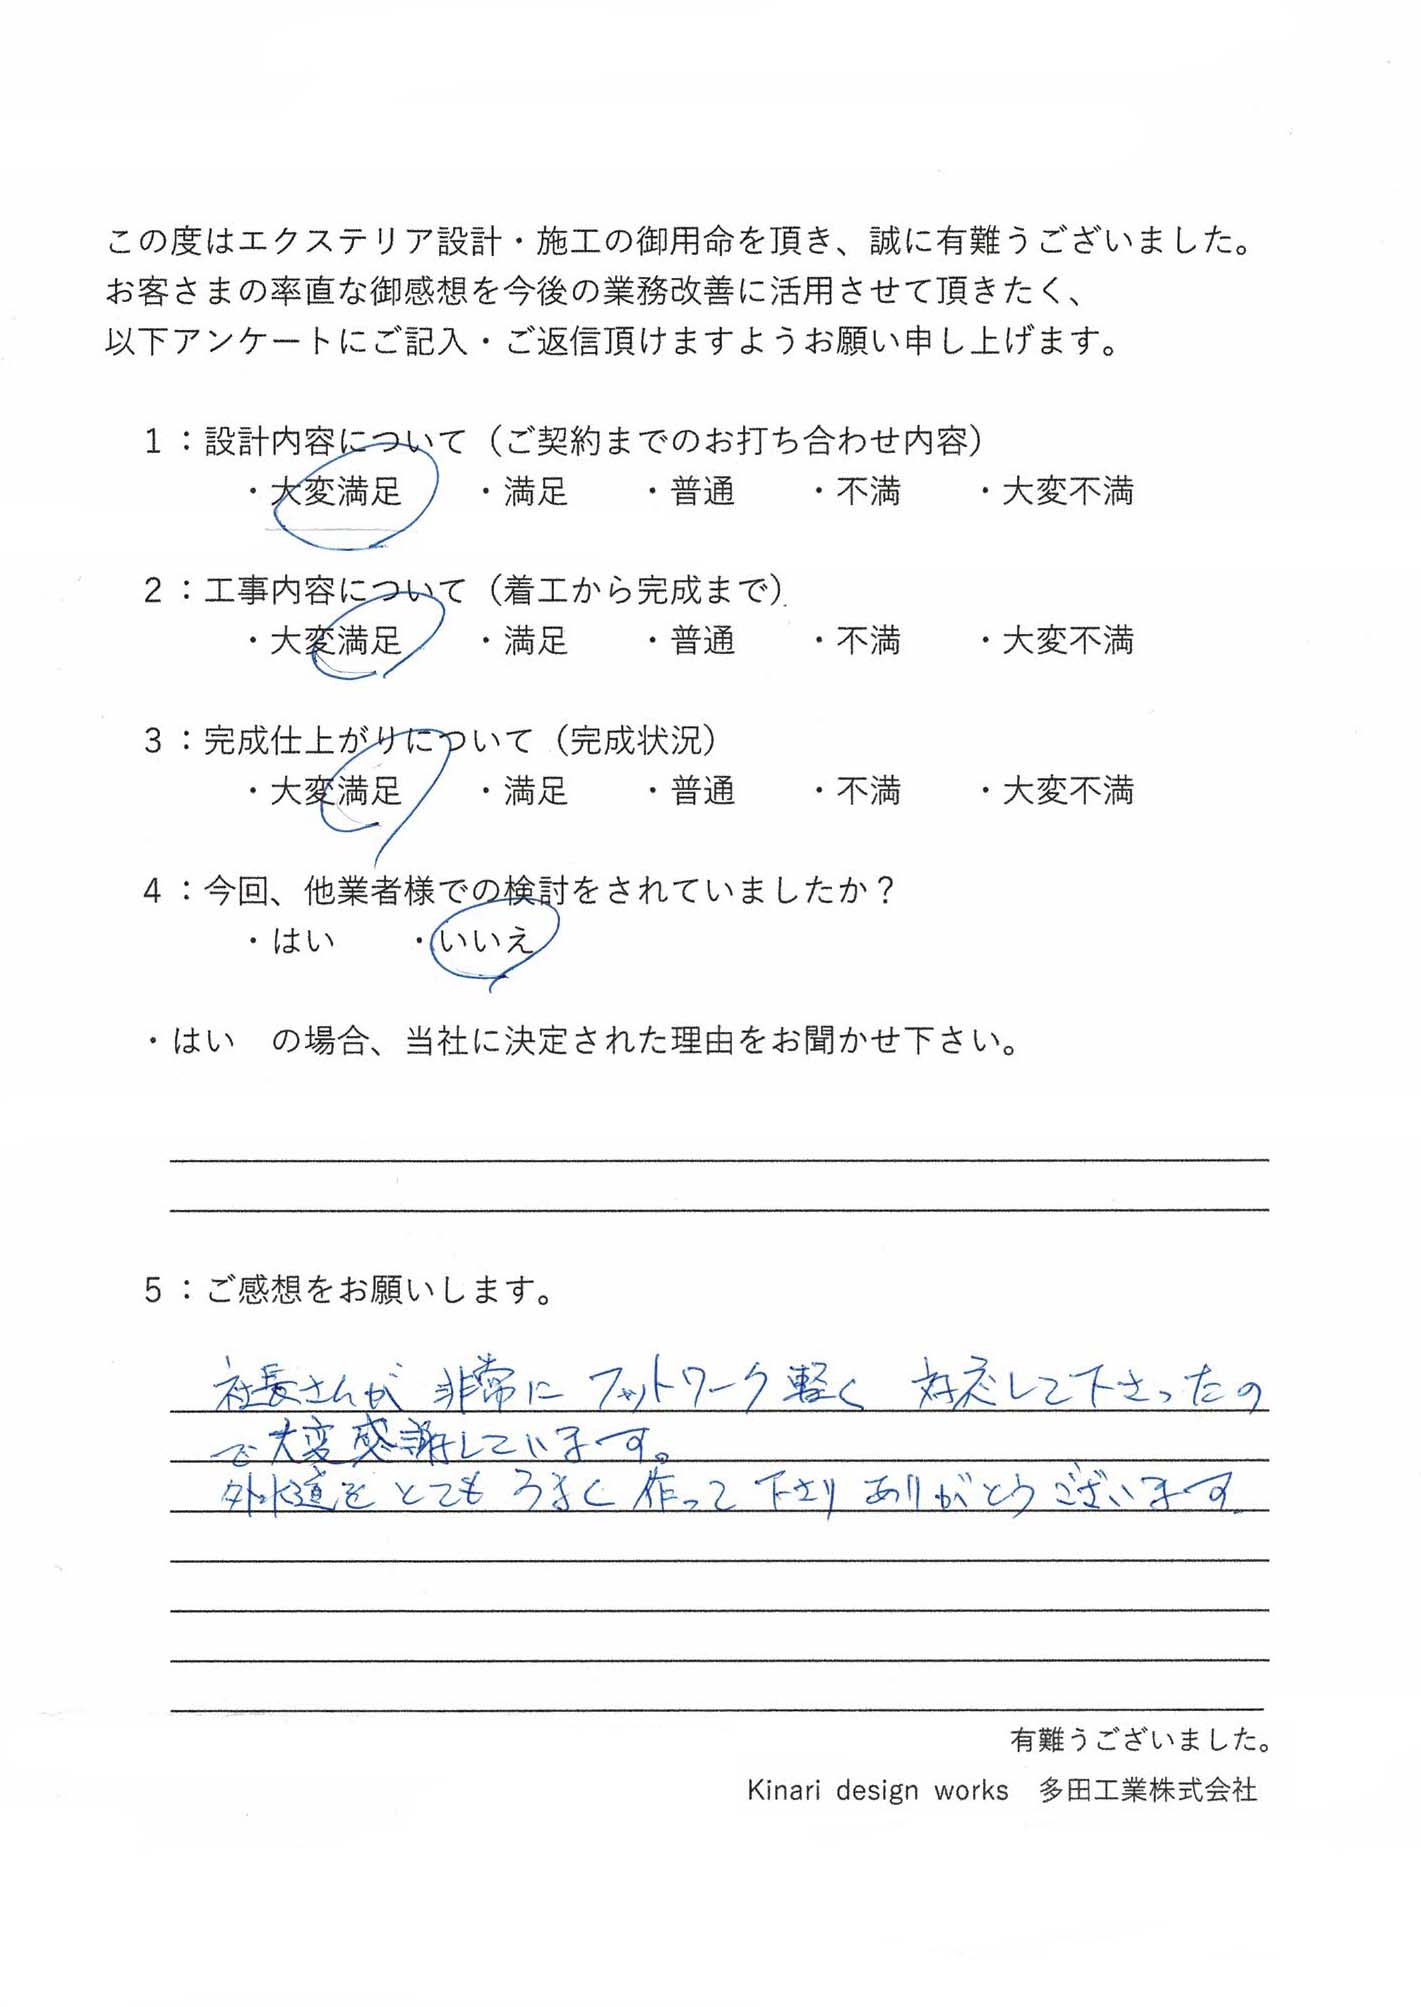 この度はエクステリア設計・施工の御用命を頂き、誠に有難うございました。
お客さまの率直な御感想を今後の業務改善に活用させて頂きたく、
以下アンケートにご記入・ご返信頂けますようお願い申し上げます。
1：設計内容について（ご契約までのお打ち合わせ内容）
・大変満足 ・満足 ・普通 ・不満 ・大変不満
2：工事内容について（着工から完成まで）
・大変満足 ・満足 ・普通 ・不満 ・大変不満
3：完成仕上がりについて（完成状況）
・大変満足 ・満足 ・普通 ・不満 ・大変不満
4：今回、他業者様での検討をされていましたか？
・はい ・いいえ
・はい　の場合、当社に決定された理由をお聞かせ下さい。
5：ご感想をお願いします。
社長さんが 非常に フットワーク軽く 対応して下さったの
で大変感謝しています。
外水道を とても うまく 作って 下さり ありがとうございます。
有難うございました。
Kinari design works　多田工業株式会社